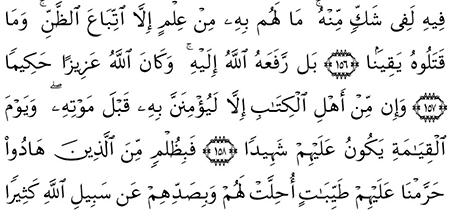 فِيهِ لَفِى شَكٍّ مِّنْهُ ۚ مَا لَهُم بِهِۦ مِنْ عِلْمٍ إِلَّا ٱتِّبَاعَ ٱلظَّنِّ ۚ وَمَا
قَتَلُوهُ يَقِينًۢا ﴿١٥٦﴾ بَل رَّفَعَهُ ٱللَّهُ إِلَيْهِ ۚ وَكَانَ ٱللَّهُ عَزِيزًا حَكِيمًا
﴿١٥٧﴾ وَإِن مِّنْ أَهْلِ ٱلْكِتَـٰبِ إِلَّا لَيُؤْمِنَنَّ بِهِۦ قَبْلَ مَوْتِهِۦ ۖ وَيَوْمَ
ٱلْقِيَـٰمَةِ يَكُونُ عَلَيْهِمْ شَهِيدًا ﴿١٥٨﴾ فَبِظُلْمٍ مِّنَ ٱلَّذِينَ هَادُوا۟
حَرَّمْنَا عَلَيْهِمْ طَيِّبَـٰتٍ أُحِلَّتْ لَهُمْ وَبِصَدِّهِمْ عَن سَبِيلِ ٱللَّهِ كَثِيرًا